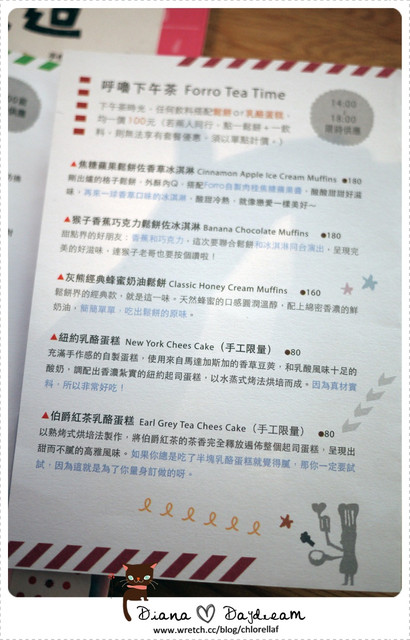 呼嚕下午茶 Forro Tea Time
14:00
-
18:00
限時供應
下午茶時光，任何飲料搭配鬆餅or乳酪蛋糕，
均一價100元（若兩人同行，點一鬆餅+一飲
料，則無法享有套餐優惠，須以單點計價。）
▲焦糖蘋果鬆餅佐香草冰淇淋 Cinnamon Apple Ice Cream Muffins ●180
剛出爐的格子鬆餅，外酥內Q，搭配Forro自製肉桂焦糖蘋果醬，酸酸甜甜好滋
味，再來一球香草口味的冰淇淋，酸甜冷熱，就像戀愛一樣美好～
▲猴子香蕉巧克力鬆餅佐冰淇淋 Banana Chocolate Muffins ●180
甜點界的好朋友：香蕉和巧克力，這次要聯合鬆餅和冰淇淋同台演出，呈現完
美的好滋味，連猴子老哥也要按個讚啦！
▲灰熊經典蜂蜜奶油鬆餅 Classic Honey Cream Muffins ●160
鬆餅界的經典款，就是這一味。天然蜂蜜的口感圓潤溫醇，配上綿密香濃的鮮
奶油，簡簡單單，吃出鬆餅的原味。
▲紐約乳酪蛋糕 New York Chees Cake（手工限量） ●80
充滿手作感的自製蛋糕，使用來自馬達加斯加的香草豆莢，和乳酸風味十足的
酸奶，調配出香濃紮實的紐約起司蛋糕，以水蒸式烤法烘焙而成。因為真材實
料，所以非常好吃！
▲伯爵紅茶乳酪蛋糕 Earl Grey Tea Chees Cake（手工限量） ●80
以熟烤式烘培法製作，將伯爵紅茶的茶香完全釋放遍佈整個起司蛋糕，呈現出
甜而不膩的高雅風味。如果你總是吃了半塊乳酪蛋糕就覺得膩，那你一定要試
試，因為這就是為了你量身訂做的呀。
Diana ♡ Daydream
www.wretch.cc/blog/chlorellaf